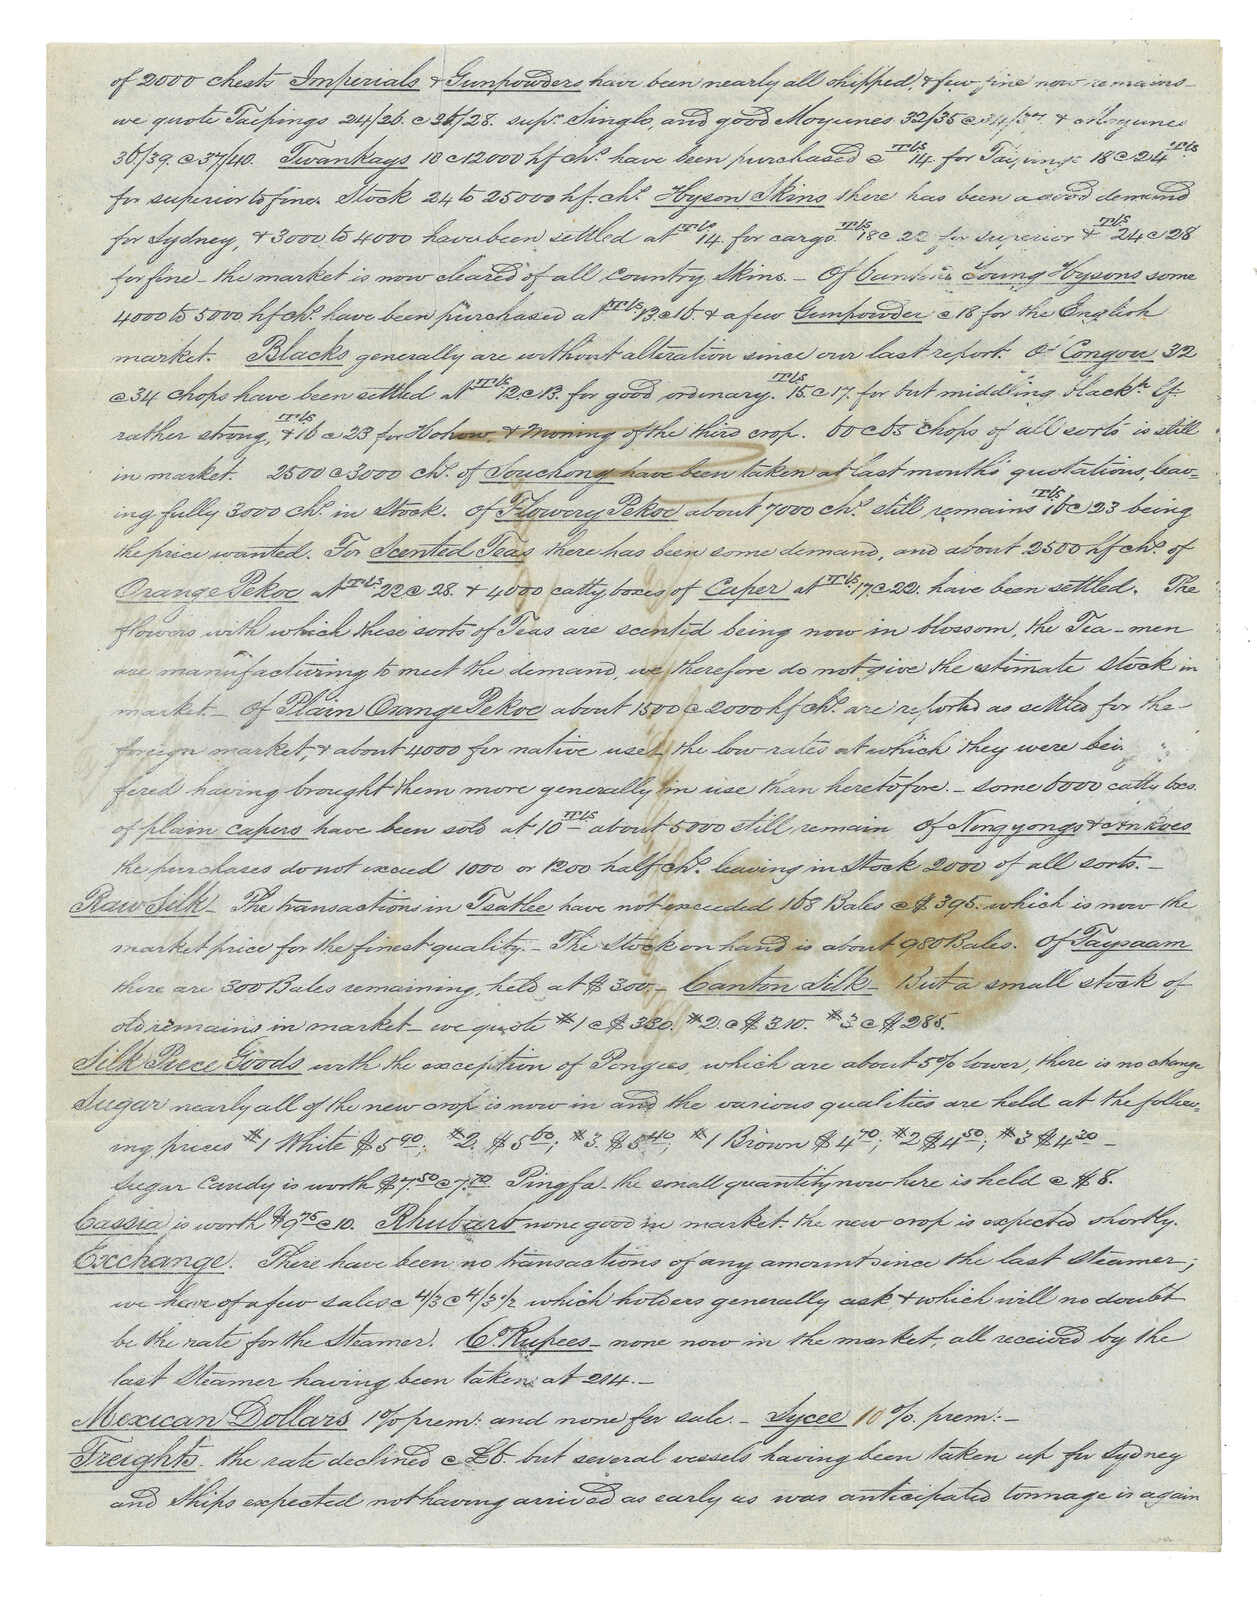 of 2000 chests Imperials & Gunpowders have been nearly all shipped, & few fine now remains –
we quote Taepings 24/26 @ 26/28. supr. Singlo, and good Moyunes 32/35 @ 34/37. & Moyunes
36/39. @ 37/40. Twankays 10 @ 12000 hf chs. have been purchased @ Tls 14. for Taepings 18 @ 24 Tls
for superior to fine. Stock 24 to 25000 hf. chs. Hyson Skins there has been a good demand
for Sydney, & 3000 to 4000 have been settled at Tls 14. for cargo. Tls 18 @ 22 for superior & Tls 24 @ 28
for fine – the market is now cleared of all Country Skins. – Of Canton Young Hysons some
4000 to 5000 hf chs. have been purchased at Tls 13 @ 16. & a few Gunpowder @ 18 for the English
market. Blacks generally are without alteration since our last report. Of Congou 32
@ 34 chops have been settled at Tls 12 @ 13. for good ordinary. Tls 15 @ 17. for but middling black lf.
rather strong, & Tls 16 @ 23 for Hohow & Moning of the third crop. 60 @ 65 chops of all sorts is still
in market. 2500 @ 3000 chs. of Souchong have been taken at last month's quotations, leav-
ing fully 3000 chs. in Stock. Of Flowery Pekoe about 7000 chs. still remains Tls 16 @ 23 being
the price wanted. For Scented Teas there has been some demand, and about 2500 hf chs. of
Orange Pekoe at Tls 22 @ 28. & 4000 catty boxes of Caper at Tls 17 @ 22. have been settled. The
flowers with which these sorts of Teas are scented being now in blossom, the Tea-men
are manufacturing to meet the demand, we therefore do not give the estimate stock in
market. – Of Plain Orange Pekoe about 1500 @ 2000 hf chs. are reported as settled for the
foreign market, & about 4000 for native use – the low rates at which they were
fered having brought them more generally in use than heretofore. – some 6000 catty bxs.
of plain capers have been sold at 10 Tls about 5000 still remain Of Ningyongs & Ankoes
the purchases do not exceed 1000 or 1200 half chs. leaving in Stock 2000 of all sorts. –
Raw Silk – The transactions in Tsatlee have not exceeded 168 Bales @ $395. which is now the
market price for the finest quality. – The Stock on hand is about 980 Bales. Of Taysaam
there are 300 Bales remaining, held at $300. – Canton Silk – But a small stock of
old remains in market – we quote #1 @ $330. #2 @ $310. #3 @ $285.
Silk Piece Goods with the exception of Pongees, which are about 5% lower, there is no change
Sugar nearly all of the new crop is now in and the various qualities are held at the follow-
ing prices #1 White $5 90; #2. $5 60; #3. $5 40; #1 Brown $4 70; #2 $4 50; #3 $4 30 –
Sugar Candy is worth $7. 50 @ 7. 70 Pingfa the small quantity now here is held @ $8.
Cassia is worth $9 75 @ 10. Rhubarb none good in market. the new crop is expected shortly.
Exchange. There have been no transactions of any amount since the last Steamer;
we hear of a few sales @ 4/3 @ 4/3 1/2 which holders generally ask & which will no doubt
be the rate for the Steamer. Co. Rupees – none now in the market, all received by the
last Steamer having been taken at 214. –
Mexican Dollars 1% prem: and none for sale. – Sycee 10 %. prem: –
Freights. the rate declined @ £6. but several vessels having been taken up for Sydney
and Ships expected not having arrived as early as was anticipated tonnage is again